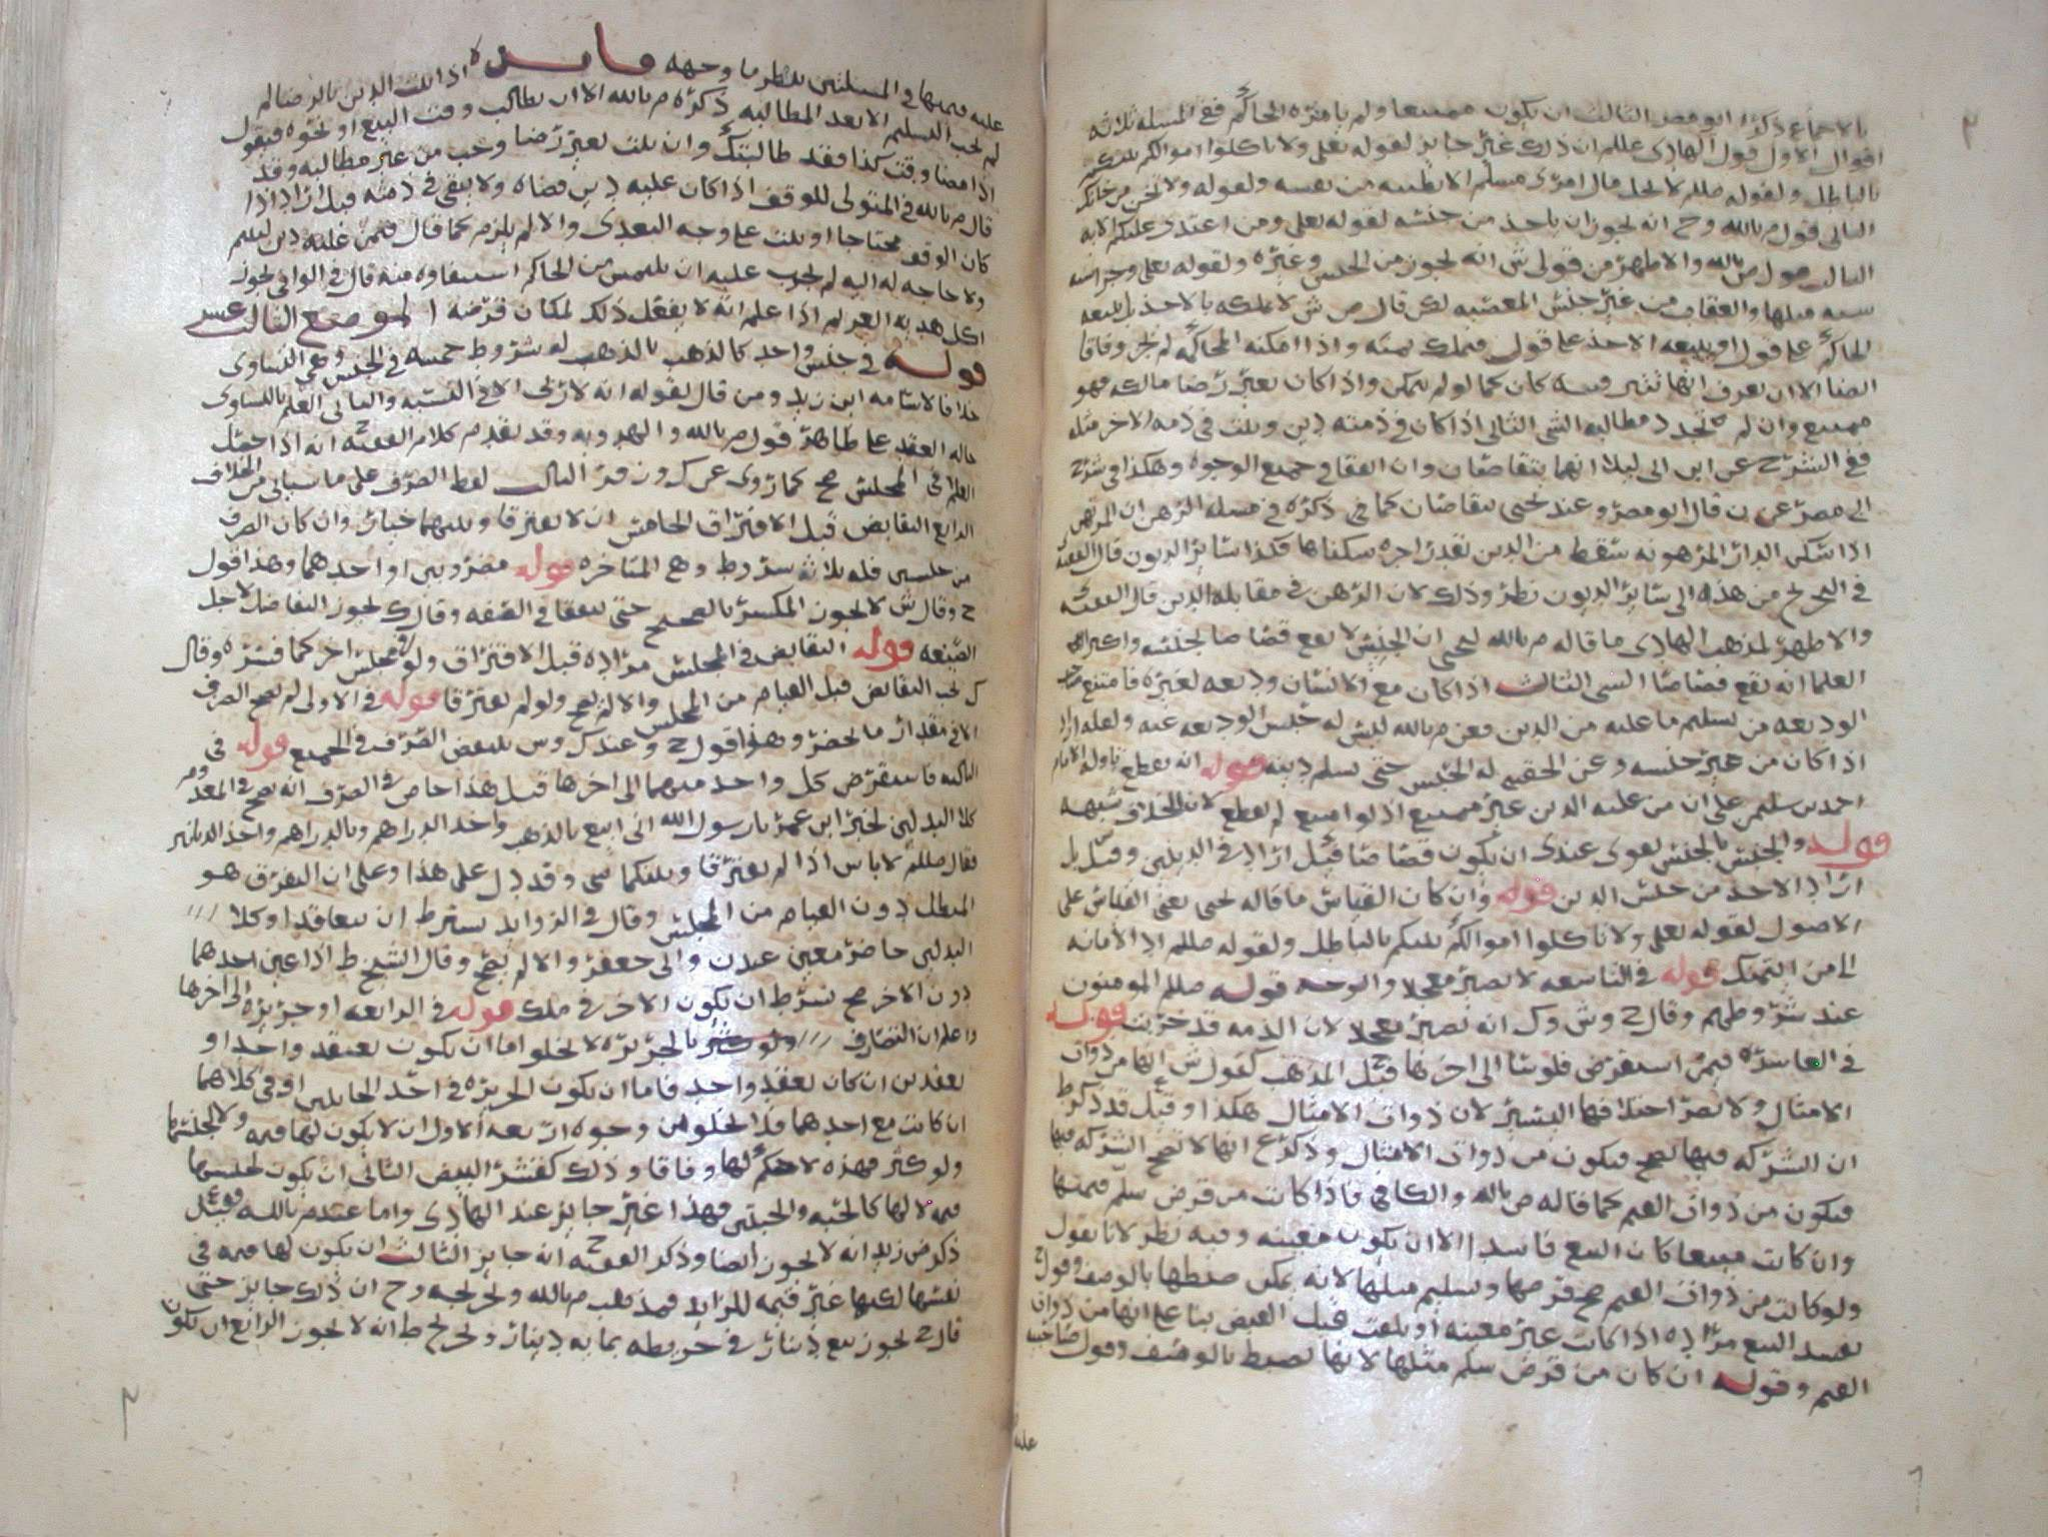 بالاجماع ذكره ابو مضر الثالث ان يكون ممتنعا ولم يامره الحاكم ففي المسله ثلاثه
اقوال الاول قول الهادي عللم ان ذلك غير جايز لقوله تعلى ولا تاكلوا اموالكم بينكم
بالباطل ولقوله صللم لا يحل مال امرى مسلم الا بطيبه من نفسه ولقوله ولا تخن من خانك
الثاني قول م بالله وح انه يجوز ان ياخذ من جنسه لقوله تعلى ومن اعتدى عليكم الايه
الثالث قول ص بالله والاظهر من قولي ش انه يجوز من الجنس وغيره ولقوله تعلى وجزا سيه
سيه مثلها والعقاب من غير جنش المعصيه لكن قال ص ش لا يملكه بالاخذ بل يبيعه
الحاكم على قول او يبيعه الاخذ على قول فيملك ثمنه واذا امكنه الحاكم لم يجز وفاقا
ايضا الا ان يعرف انها تثير فتنه كان كما لو لم يمكن واذا كان بغير رضا مالكه فهو
ممتنع وان لم تجدد مطالبه الشي الثاني اذا كان في ذمته دين وثبت في ذمه الاخر مثله
ففي الشرح عن ابن ابي ليلا انهما يتقاصان وان اتفقا في جميع الوجوه وهكذا في شرح
ابي مضر عن ن قال ابو مضر وعند يحيى يتقاصان كما في ذكره في مسله الرهن ان المرتهن
اذا سكن الدار المرهونه سقط من الدين بقدر اجره سكناها فكذا سائر الديون قال الفقيه
في التخريج من هذه الى سائر الديون نظر وذلك لان الرهن في مقابله الدين قال الفقيه
والاظهر لمذهب الهادي ما قاله م بالله ليحيى ان الجنس لا يقع قصاصا لجنسه واكثر
العلما انه يقع قصاصا الشي الثالث اذا كان مع الانسان وديعه لغيره فامتنع صاحب
الوديعه من تسليم ما عليه من الدين فعن م بالله ليس له حبس الوديعه عنه ولعله اراد
اذا كان من غير جنسه وعن الحقيني له الحبس حتى يسلم دينه قوله انه يقطع تاوله الامام
احمد بن سليمن على ان من عليه الدين غير ممتنع اذ لو امتنع لم يقطع لان الخلاف شبهه
قوله والجنس بالجنس يقوى عندي ان يكون قصاصا قيل اراد في الدينين وقيل بل
اراد الاخذ من جنس الدين قوله وان كان القياس ما قاله يحيى يعني القياس على
الاصول لقوله تعلى ولا تاكلوا اموالكم بينكم بالباطل ولقوله صللم اد الامانه
الى من ائتمنك قوله في التاسعه لا يصير معجلا والوجه قوله صللم المومنون
عند شروطهم وقال ح وش وك انه يصير معجلا لان الذمه قد خربت قوله
في العاشره فيمن استقرض فلوسا الى اخرها قيل المذهب كقول ش انها من ذوات
الامثال ولا يضر اختلافها اليسير لان ذوات الامثال هكذا وقيل قد ذكر ط
ان الشركه فيها تصح فتكون من ذوات الامثال وذكر ع انها لا تصح الشركه فيها
فتكون من ذوات القيم كما قاله ص بالله والكافي فاذا كانت من قرض سلم قيمتها
وان كانت مبيعا كان البيع فاسدا الا ان تكون معينه وفيه نظر لانا نقول
ولو كانت من ذوات القيم صح قرضها وتسليم مثلها لانه يمكن ضبطها بالوصف وقول
يفسد البيع مراده اذا كانت غير معينه او بلغت قبل القبض بنا على انها من ذوات
القيم وقوله ان كان من قرض سلم مثلها لانها تضبط بالوصف وقول صاحب
عليه
عليه قيمتها في المسلتين ينظر ما وجهه فايده اذا ثبت الدين بالرضا لم
لم يجب التسليم الا بعد المطالبه ذكره م بالله الا ان يطالب وقت البيع او نحوه فيقول
اذا مضا وقت كذا فقد طالبتك وان ثبت بغير رضا وجب من غير مطالبه وقد
قال م بالله في المتولي للوقف اذا كان عليه دين قضاه ولا يبقى في ذمته قيل اراد اذا
كان الوقف محتاجا او ثبت على وجه التعدي والا لم يلزم كما قال فيمن عليه دين ليتيم
ولا حاجه له اليه لم يجب عليه ان يلتمس من الحاكم استيفاوه منه قال في الوافي يجوز
اكل هديه الغريم اذا علم انه لا يفعل ذلك لمكان قرضه الموضع الثالث عشر
قوله في جنس واحد كالذهب بالذهب له شروط خمسه في الجنس وهي التساوي
خلافا لاسامه ابن زيد ومن قال بقوله انه لا ربى الا في النسيه والثاني العلم بالتساوي
حاله العقد على ظاهر قول م بالله والهدويه وقد تقدم كلام الفقيه انه اذا حصل
العلم في المجلس صح كما روي عن ك ون قر الثالث لفظ الصرف على ما سياتي من الخلاف
الرابع التقابض قبل الافتراق الخامس ان لا يفترقا وبينهما خيار وان كان الصرف
من جنسين فله ثلاثه شروط وهي المتاخره قوله مضروبين او احدهما وهذا قول
ح وقال ش لا يجوز المكسر بالصحيح حتى يتفقا في الصفه وقال ك يجوز التفاضل لاجل
الصنعه قوله التقابض في المجلس مراده قبل الافتراق ولو في مجلس اخر كما فسره وقال
ك يجب التقابض قبل القيام من المجلس والا لم يصح ولو لم يفترقا قوله في الاولى لم يصح الصرف
الا في مقدار ما يحضر وهذا قول ح وعند ك وس يبتعض الصرف في الجميع قوله في
الثالثه فاستقرض كل واحد منهما الى اخرها قيل هذا خاص في الصرف انه صح في المعدوم
كلا البدلين لخبر ابن عمر يا رسول الله اني ابيع بالذهب واخذ الدراهم وبالدراهم واخذ الدنانير
فقال صللم لا باس اذا لم تفترقا وبينكما شي وقد دل على هذا وعلى ان التفرق هو
المبطل دون القيام من المجلس وقال في الزوايد يشترط ان يتعاقدا وكلا
البدلين حاضر معين عند ن وابي جعفر والا لم يصح وقال الشيخ ط اذا عين احدهما
دون الاخر صح بشرط ان يكون الاخر في ملك قوله في الرابعه او جريره الى اخرها
واعلم ان التصارف ولو كثر بالجريره لا يخلو اما ان يكون بعقد واحد او
بعقدين ان كان بعقد واحد فاما ان يكون الجريره في احد الجانبين او في كلاهما
ان كانت مع احدهما فلا يخلو من وجوه اربعه الاول ان لا يكون لها قيمه ولا لجنسها
ولو كثر فهذه لا حكم لها وفاقا وذلك كقشر البيض الثاني ان يكون لجنسها
قيمه لا لها كالحبه والحبتين فهذا غير جايز عند الهادي واما عند م بالله فقيل
ذكر ض زيد انه لا يجوز ايضا وذكر الفقيه انه جايز الثالث ان يكون لها قيمه في
نفسها لكنها غير قيمه للزايد فمذهب م بالله وتخريجه وح ان ذلك جايز حتى
قال ح يجوز بيع دينار في خريطه بمايه دينار وتخريج ط انه لا يجوز الرابع ان يكون